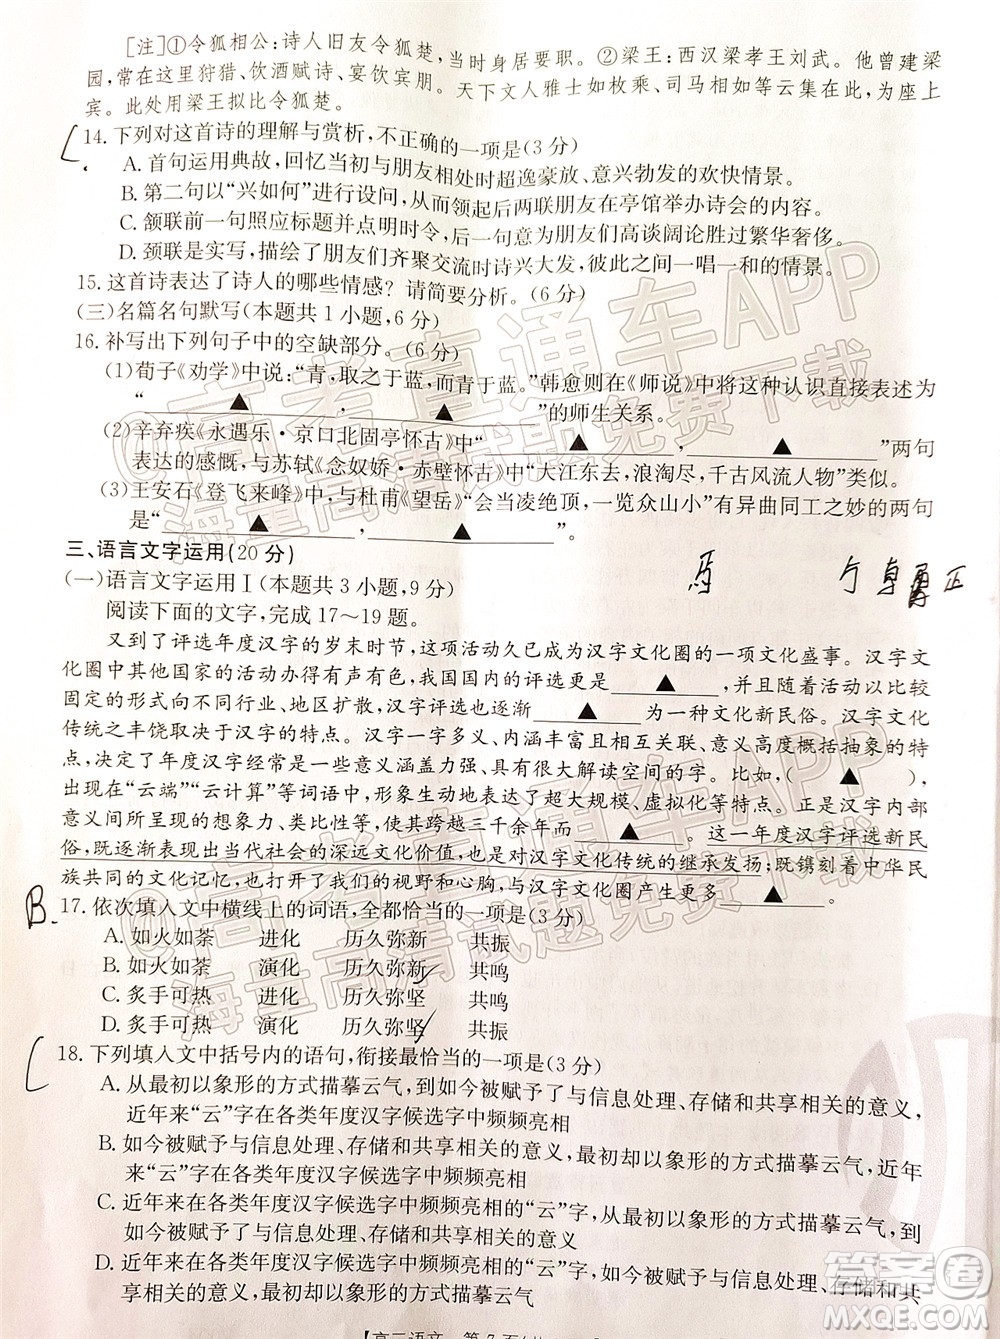 [注]①令狐相公:诗人旧友令狐楚,当时身居要职。②梁王:西汉梁孝王刘武。他曾建梁
园,常在这里狩猎、饮酒赋诗、宴饮宾朋。天下文人雅士如枚乘、司马相如等云集在此,为座上
宾。此处用梁王拟比令狐楚。
14.下列对这首诗的理解与赏析,不正确的一项是(3分)
A.首句运用典故,回忆当初与朋友相处时超逸豪放、意兴勃发的欢快情景。
B.第二句以“兴如何”进行设问,从而领起后两联朋友在亭馆举办诗会的内容。
C.颔联前一句照应标题并点明时令,后一句突出朋友们高谈阔论胜过繁华奢侈。
D.颈联是实写,描绘了朋友们齐聚交流时诗兴大发,彼此之间一唱一和的情景。
15.这首诗表达了诗人的哪些情感?请简要分析。(6分)
(三)名篇名句默写(本题共1小题,6分)
16.补写出下列句子中的空缺部分。(6分)
(1)荀子《劝学》中说:“青,取之于蓝,而青于蓝。”韩愈则在《师说》中将这种认识直接表述为
“▲,▲”的师生关系。
(2)辛弃疾《永遇乐·京口北固亭怀古》中“▲,▲”两句
表达的感慨,与苏轼《念奴娇·赤壁怀古》中“大江东去,浪淘尽,千古风流人物”类似。
(3)王安石《登飞来峰》中,与杜甫《望岳》“会当凌绝顶,一览众山小”有异曲同工之妙的两句
是“▲,▲”。
三、语言文字运用(20分)
(一)语言文字运用Ⅰ(本题共3小题,9分)
阅读下面的文字,完成17～19题。
又到了评选年度汉字的岁末时节,这项活动久已成为汉字文化圈的一项文化盛事。汉字文
化圈中其他国家的活动办得有声有色,我国国内的评选更是▲。随着评选活动以相对
固定的形式向不同行业、地区扩散,汉字评选也逐渐▲为一种文化新民俗。汉字文化
传统之丰饶取决于汉字的特点。汉字一字多义、内涵丰富且相互关联、意义高度概括抽象的特
点,决定了年度汉字经常是一些概念涵盖力强、具有很大解读空间的字。比如,(▲),
出现在“云端”“云计算”等词语中,形象生动地表达了超大规模、虚拟化等特点。正是汉字内部
意义间所呈现的想象力、类比性等,使其跨越三千余年而▲。这一年度汉字评选新民
俗,既逐渐表现出当代社会的深远文化价值,也是对汉字文化传统的继承发扬;既镌刻着中华民
族共同的文化记忆,也打开了我们的视野和心胸,与汉字文化圈产生更多▲。
B.
17.依次填入文中横线上的词语,全都恰当的一项是(3分)
A.如火如荼 进化 历久弥新 共振
B.如火如荼 演化 历久弥新 共鸣
C.炙手可热 进化 历久弥坚 共鸣
D.炙手可热 演化 历久弥坚 共振
18.下列填入文中括号内的语句,衔接最恰当的一项是(3分)
A.从最初以象形的方式描摹云气,到如今被赋予了与信息处理、存储和共享相关的意义,
近年来“云”字在各类年度汉字候选字中频频亮相
B.如今被赋予与信息处理、存储和共享相关的意义,最初以象形的方式描摹云气,近年来
“云”字在各类年度汉字候选字中频频亮相
C.近年来在各类年度汉字候选字中频频亮相的“云”字,从最初以象形的方式描摹云气,到
如今被赋予了与信息处理、存储和共享相关的意义
D.近年来在各类年度汉字候选字中频频亮相的“云”字,如今被赋予与信息处理、存储和共
享相关的意义,最初以象形的方式描摹云气